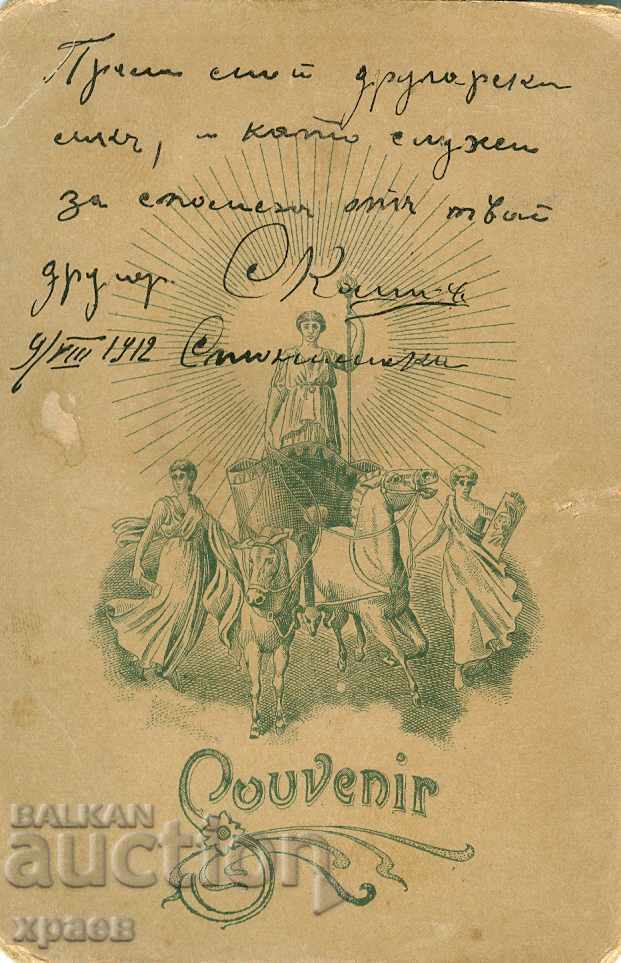 Приеми моя другарски
лик, и като служи
за спомен отъ твой
другар.
9/VIII 1912
Souvenir
BALKAN
auction
храев